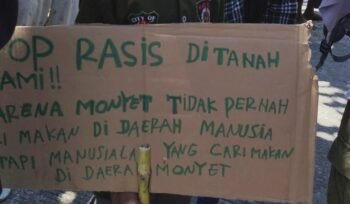 OP RASIS DITANAH
AMI!!
ARENA MONYET TIDAK PERNAH
RI MAKAN DI DAERAH MANUSIA
TAPI MANUSIALAH YANG CARI MAKAN
DI DAERAH MONYET